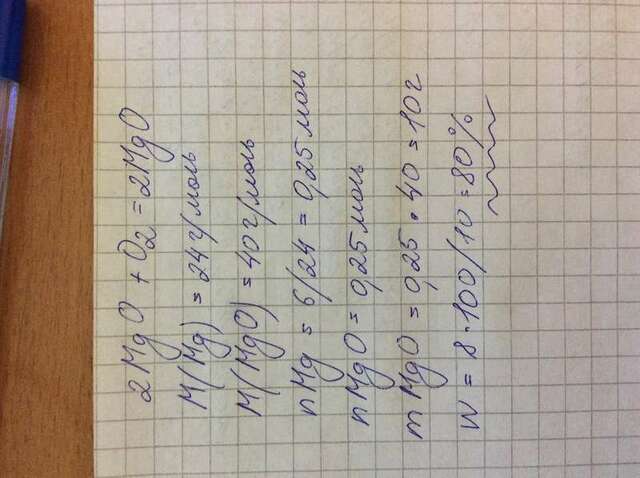 2MgO + O2 = 2MgO
M(Mg) = 24 г/моль
M(MgO) = 40 г/моль
nMg = 6/24 = 0,25 моль
nMgO = 0,25 моль
mMgO = 0,25 • 40 = 10 г
W = 8 • 100/10 = 80%